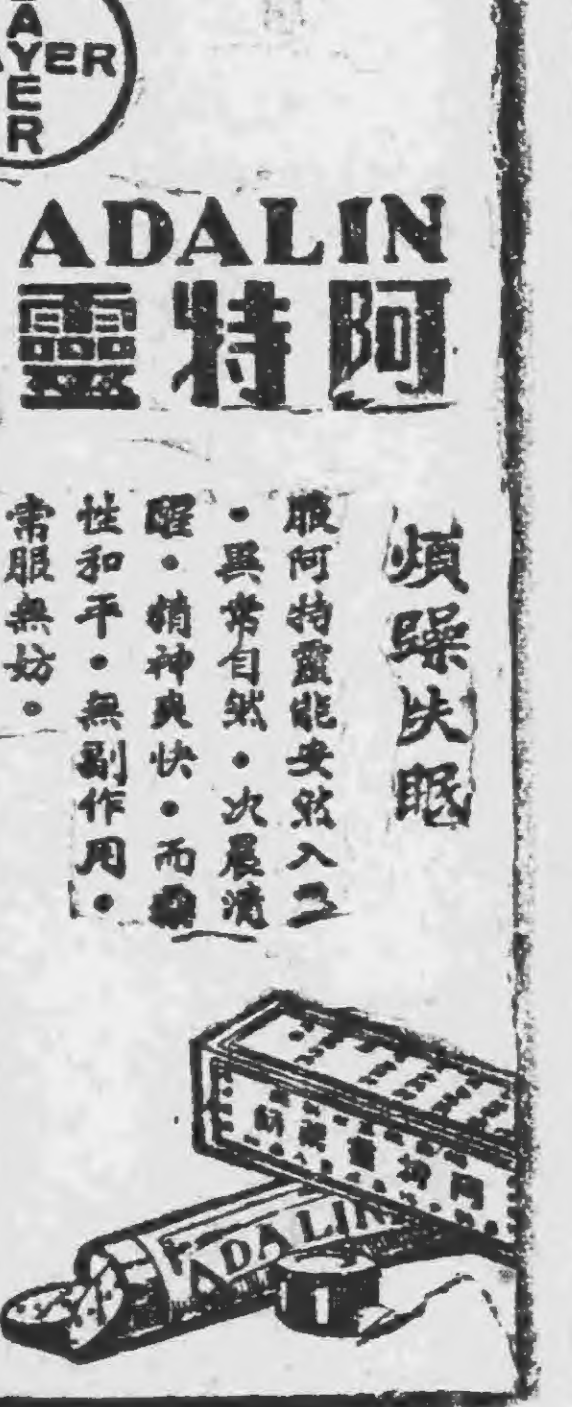 BAYER
BAYER
ADALIN
阿特靈
煩躁失眠
服阿特靈能安然入
。異常自然。次晨清
醒。精神爽快。而藥
性和平。無副作用。
常服無妨。
ADALIN